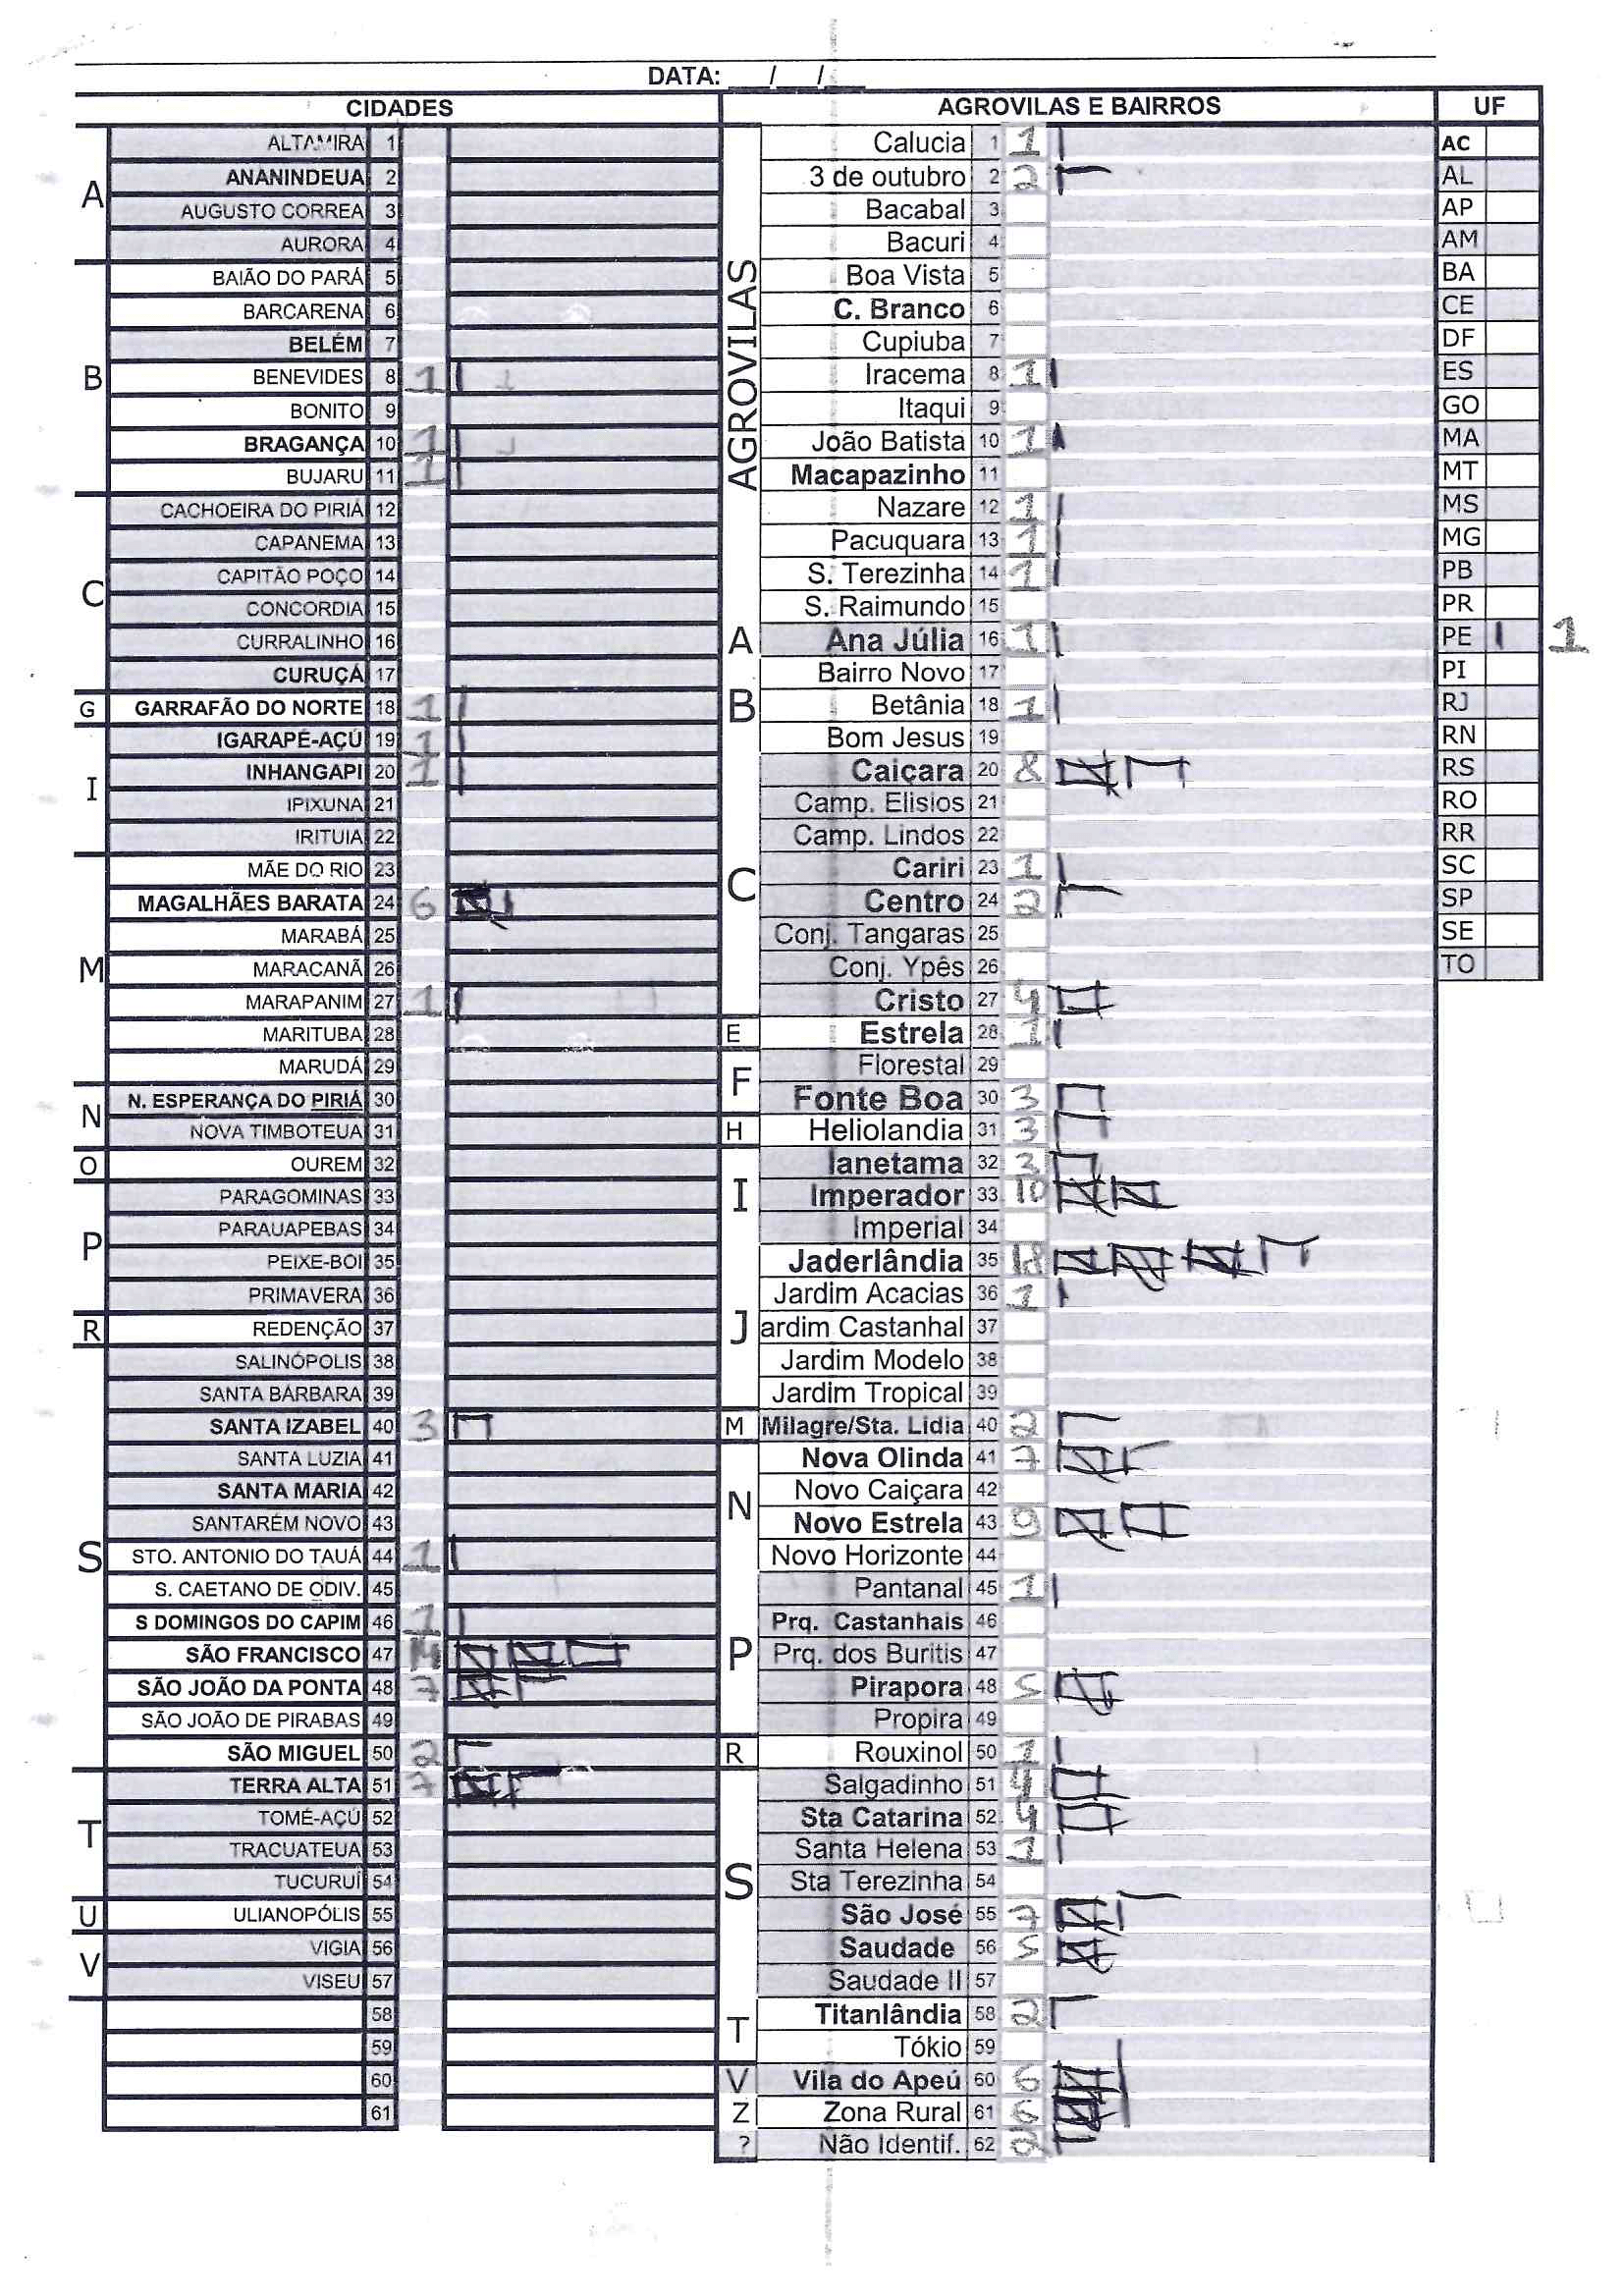 DATA: __/__/__
CIDADES
A
ALTAMIRA 1
ANANINDEUA 2
AUGUSTO CORREA 3
AURORA 4
B
BAIÃO DO PARÁ 5
BARCARENA 6
BELÉM 7
BENEVIDES 8 1
BONITO 9
BRAGANÇA 10 1
BUJARU 11 1
C
CACHOEIRA DO PIRIÁ 12
CAPANEMA 13
CAPITÃO POÇO 14
CONCORDIA 15
CURRALINHO 16
CURUÇÁ 17
G
GARRAFÃO DO NORTE 18 1
I
IGARAPÉ-AÇÚ 19 1
INHANGAPI 20 1
IPIXUNA 21
IRITUIA 22
M
MÃE DO RIO 23
MAGALHÃES BARATA 24 6
MARABÁ 25
MARACANÃ 26
MARAPANIM 27 1
MARITUBA 28
MARUDÁ 29
N
N. ESPERANÇA DO PIRIÁ 30
NOVA TIMBOTEUA 31
O
OUREM 32
P
PARAGOMINAS 33
PARAUAPEBAS 34
PEIXE-BOI 35
PRIMAVERA 36
R
REDENÇÃO 37
S
SALINÓPOLIS 38
SANTA BÁRBARA 39
SANTA IZABEL 40 3
SANTA LUZIA 41
SANTA MARIA 42
SANTARÉM NOVO 43
STO. ANTONIO DO TAUÁ 44 1
S. CAETANO DE ODIV. 45
S DOMINGOS DO CAPIM 46 1
SÃO FRANCISCO 47 14
SÃO JOÃO DA PONTA 48 7
SÃO JOÃO DE PIRABAS 49
SÃO MIGUEL 50 2
T
TERRA ALTA 51 7
TOMÉ-AÇÚ 52
TRACUATEUA 53
TUCURUÍ 54
U
ULIANOPÓLIS 55
V
VIGIA 56
VISEU 57
58
59
60
61
AGROVILAS E BAIRROS
AGROVILAS
Calucia 1 1
3 de outubro 2 2
Bacabal 3
Bacuri 4
Boa Vista 5
C. Branco 6
Cupiuba 7
Iracema 8 1
Itaqui 9
João Batista 10 1
Macapazinho 11
Nazare 12 1
Pacuquara 13 1
S. Terezinha 14 1
S. Raimundo 15
A
Ana Júlia 16 1
Bairro Novo 17
B
Betânia 18 1
Bom Jesus 19
C
Caiçara 20 8
Camp. Elisios 21
Camp. Lindos 22
Cariri 23 1
Centro 24 2
Conj. Tangaras 25
Conj. Ypês 26
Cristo 27 4
E
Estrela 28 1
F
Florestal 29
Fonte Boa 30 3
H
Heliolandia 31 3
I
Ianetama 32 3
Imperador 33 10
Imperial 34
J
Jaderlândia 35 18
Jardim Acacias 36 1
ardim Castanhal 37
Jardim Modelo 38
Jardim Tropical 39
M
Milagre/Sta. Lidia 40 2
N
Nova Olinda 41 7
Novo Caiçara 42
Novo Estrela 43 9
Novo Horizonte 44
P
Pantanal 45 1
Prq. Castanhais 46
Prq. dos Buritis 47
Pirapora 48 5
Propira 49
R
Rouxinol 50 1
S
Salgadinho 51 4
Sta Catarina 52 4
Santa Helena 53 1
Sta Terezinha 54
São José 55 7
Saudade 56 5
Saudade II 57
T
Titanlândia 58 2
Tókio 59
V
Vila do Apeú 60 6
Z
Zona Rural 61 6
?
Não Identif. 62 2
UF
AC
AL
AP
AM
BA
CE
DF
ES
GO
MA
MT
MS
MG
PB
PR
PE 1
PI
RJ
RN
RS
RO
RR
SC
SP
SE
TO